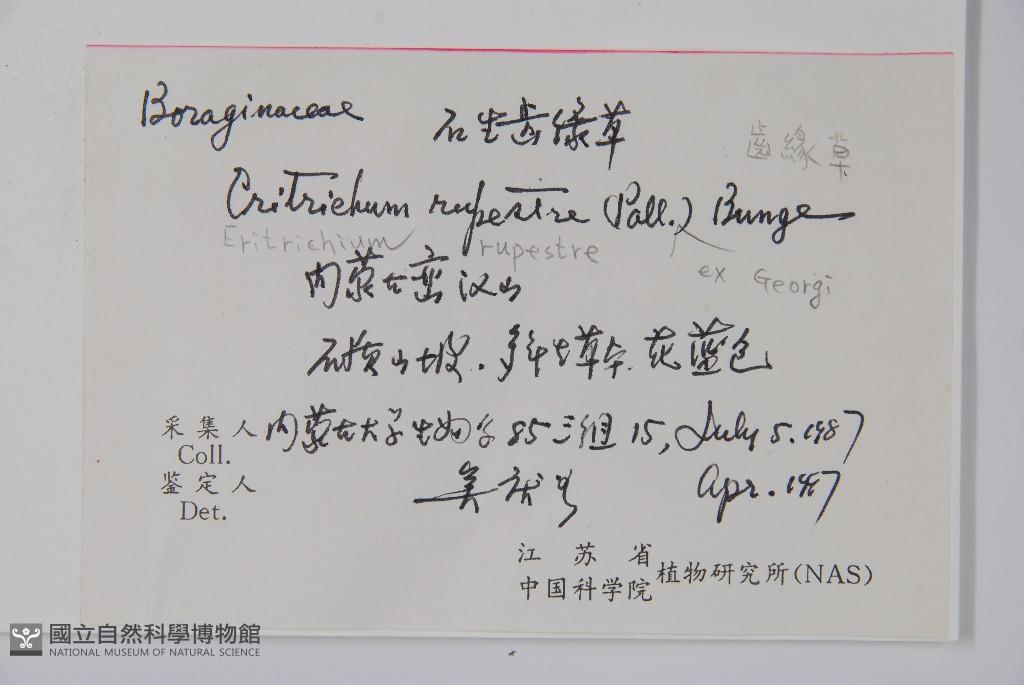 Boraginaceae 石生齿缘草 齒緣草
Critrichum rupestre (Pall.) Bunge
Eritrichium rupestre ex Georgi
内蒙古蛮汉山
山坡. 多年生草本. 花蓝色
采集人 内蒙古大学生物学85三组 15, July 5. 1987
Coll.
鉴定人 Apr. 1987
Det.
江苏省
中国科学院植物研究所(NAS)
國立自然科學博物館
NATIONAL MUSEUM OF NATURAL SCIENCE